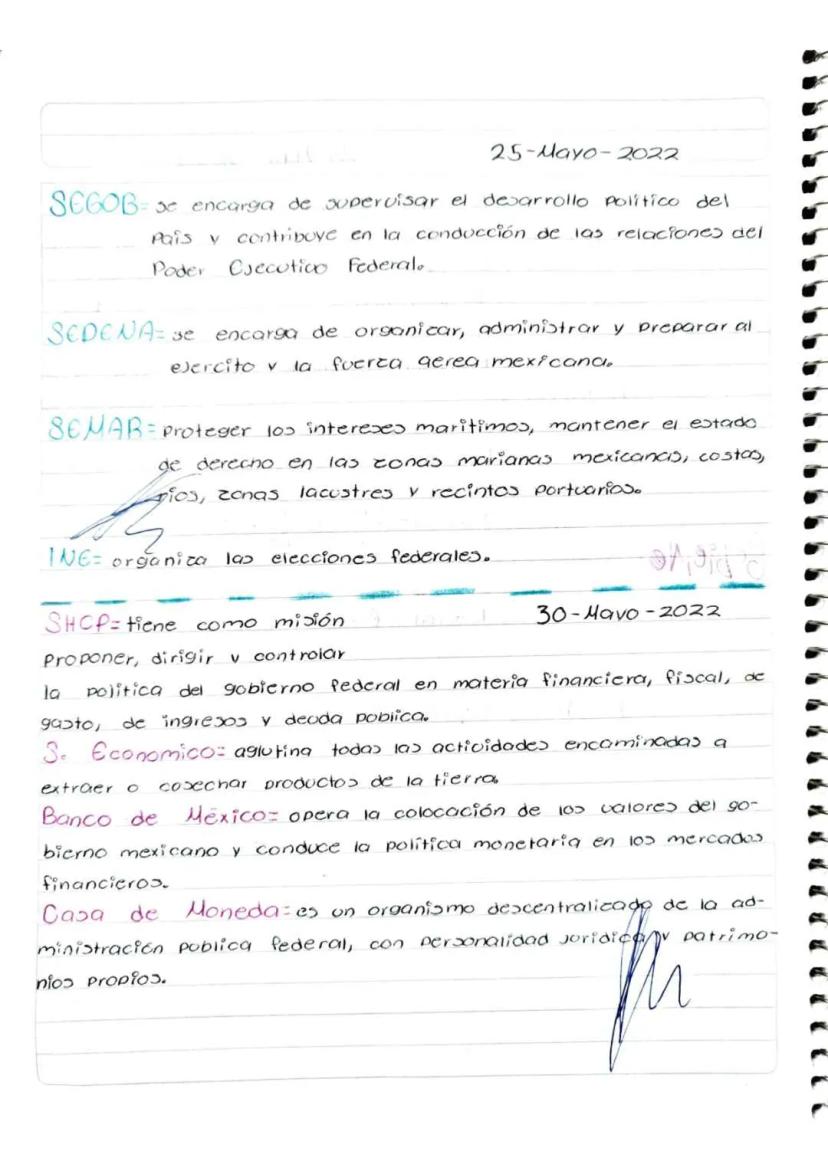 25-Mayo-2022
SEGOB= se encarga de supervisar el desarrollo político del
País y contribuye en la conducción de las relaciones del
Poder Ejecutivo Federal.
SEDENA= se encarga de organizar, administrar y preparar al
ejercito y la fuerza aerea mexicana.
SEMAR= proteger los intereses maritimos, mantener el estado
de derecho en las zonas marianas mexicanas, costas,
ríos, zonas lacustres y recintos portuarios.
INE= organiza las elecciones federales.
SHCP= tiene como misión 30-Mayo-2022
Proponer, dirigir y controlar
la política del gobierno federal en materia financiera, fiscal, de
gasto, de ingresos y deuda publica.
S. Economico= aglutina todas las actividades encaminadas a
extraer o cosechar productos de la tierra.
Banco de México= opera la colocación de los valores del go-
bierno mexicano y conduce la política monetaria en los mercados
financieros.
Casa de Moneda= es un organismo descentralizado de la ad-
ministración publica federal, con personalidad juridica y patrimo-
nios propios.